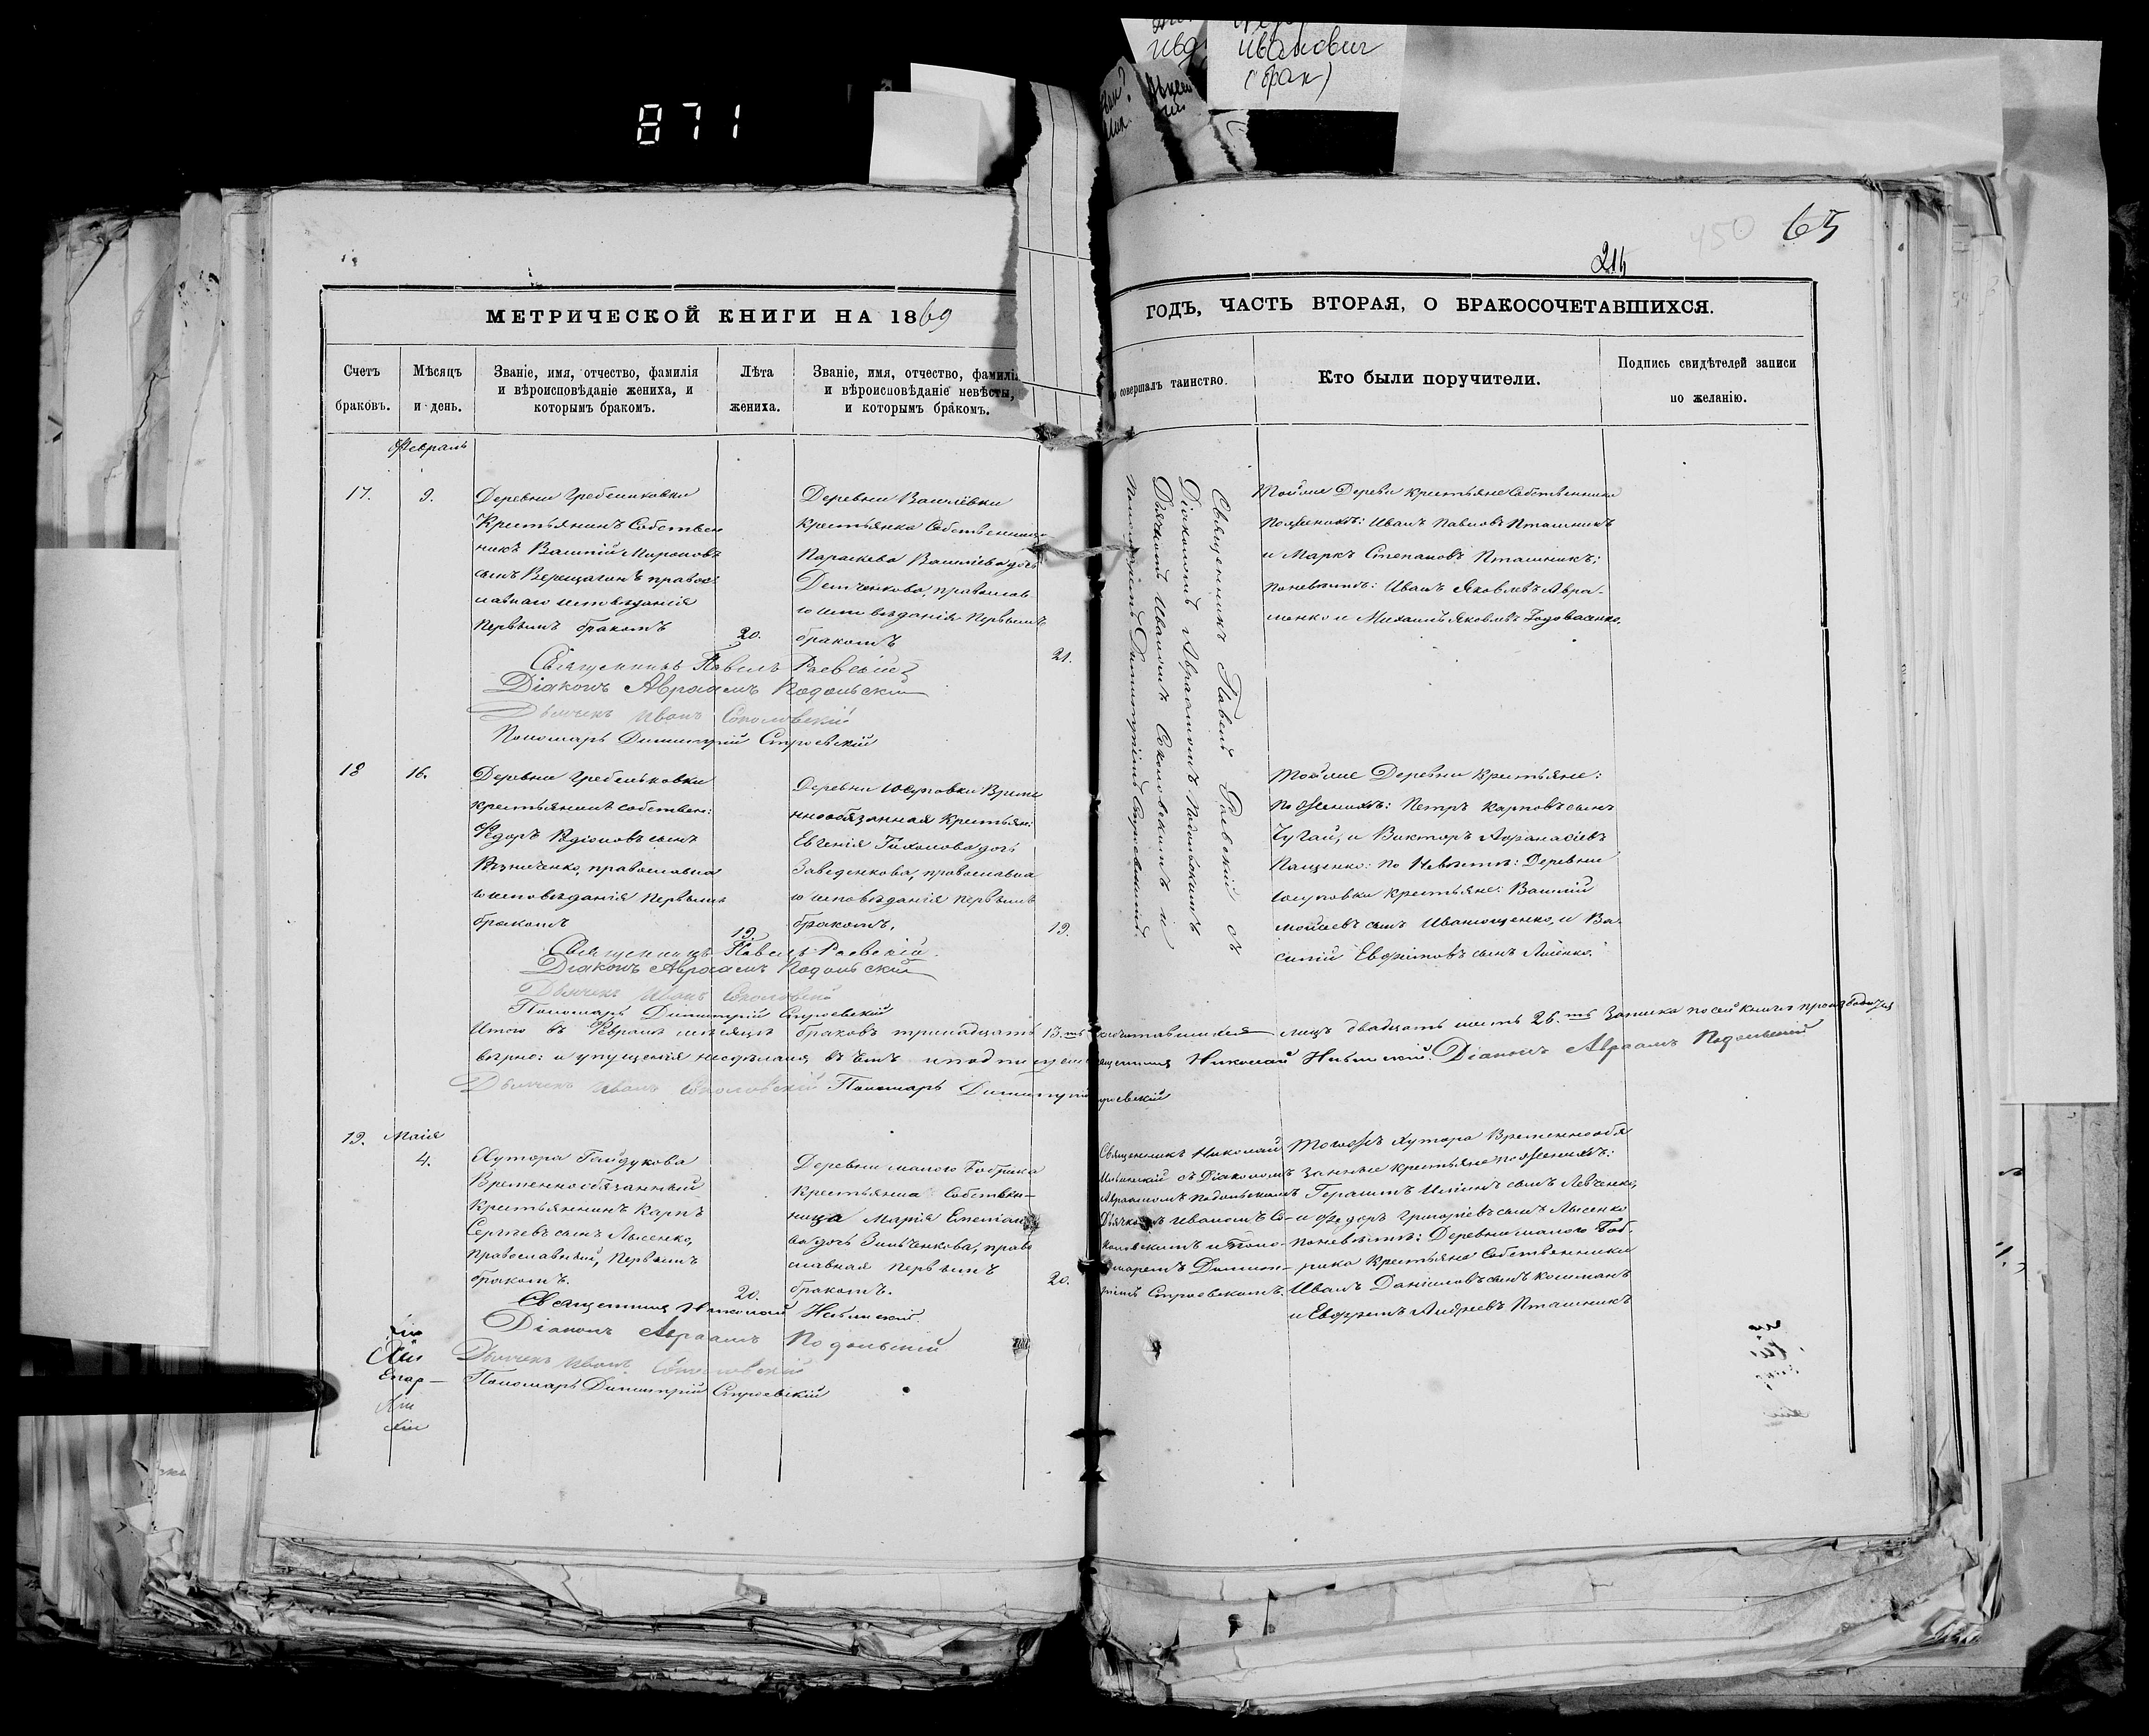 871
Иванович
(брак)
450
65
215
МЕТРИЧЕСКОЙ КНИГИ НА 1869
ГОДЪ, ЧАСТЬ ВТОРАЯ, О БРАКОСОЧЕТАВШИХСЯ.
Счетъ
браковъ.
Мѣсяцъ
и день.
Званіе, имя, отчество, фамилія
и вѣроисповѣданіе жениха, и
которымъ бракомъ.
Лѣта
жениха.
Званіе, имя, отчество, фамилі
и вѣроисповѣданіе невѣсты,
и которымъ бракомъ.
совершалъ таинство.
Кто были поручители.
Подпись свидѣтелей записи
по желанію.
Февраль
17.
9.
Деревни Гребениковки
Крестьянинъ Собствен
никъ Василій Мироновъ
сынъ Верещагинъ правос
лавнаго исповѣданія
Первымъ бракомъ
20.
Деревни Василёвки
крестьянка Собственница
Параскева Васильева дочь
Демченкова, православ
исповѣданія Первымъ
бракомъ
21.
Священникъ Павелъ Раевскій съ
Діакономъ Авраамомъ Подольскимъ
Дьячкомъ Иваномъ Соколовскимъ и
Пономаремъ Димитріемъ Строевскимъ.
Тойже Деревни крестьяне Собственники
Поженихѣ: Иванъ Павловъ Пташникъ
и Маркъ Степановъ Пташникъ;
поневѣстѣ: Иванъ Яковлевъ Авра-
менко и Михаилъ Яковлевъ
Священникъ Павелъ Раевскій
Діаконъ Авраамъ Подольскій
Дьячекъ Иванъ Соколовскій
Пономарь Димитрій Строевскій
18
16.
Деревни Гребениковки
крестьянинъ собствен:
Федоръ Родіоновъ сынъ
православна
го исповѣданія Первымъ
бракомъ
19.
Деревни Юсуповки Време
ннообязанная Крестьян:
Евгенія Тихонова дочь
Заведенкова, православна
го исповѣданія первымъ
бракомъ.
19.
Тойже Деревни Крестьяне:
по Женихѣ: Петръ Карповъ сынъ
Чугай, и Викторъ Афанасіевъ
Пащенко: по Невѣстѣ: Деревни
Юсуповки крестьяне: Василій
Моисеевъ сынъ Иванющенко, и Ва
силій Евфимовъ сынъ
Священникъ Павелъ Раевскій.
Діаконъ Авраамъ Подольскій
Дьячекъ Иванъ Соколовскій
Пономарь Димитрій Строевскій
Итого въ Февралѣ мѣсяцѣ браковъ тринадцать 13.ть сочетавшихся лицъ двадцать шесть 26.ть Записка по сей книгѣ производилась
вѣрно: и упущенія несдѣлано, въ чемъ и Николай Діаконъ Авраамъ Подольскій
Дьячекъ Иванъ Соколовскій Пономарь Димитрій Строевскій
19.
Маія
4.
Хутора Гайдукова
Временнообязанный
Крестьянинъ Карпъ
Сергѣевъ сынъ Лысенко,
православный, Первымъ
бракомъ.
20.
Деревни малого Бобрика
Крестьянка Собствен-
ница Марія Емельяно
ва дочь Зинченкова, право
славная первымъ
бракомъ.
20.
Священникъ Николай
съ Діакономъ
Авраамомъ Подольскимъ
Дьячкомъ Иваномъ Со-
коловскимъ и Поно-
маремъ Димит-
ріемъ Строевскимъ.
Тогожъ Хутора Временнообя
занные крестьяне по Женихѣ:
Герасимъ Ильинъ сынъ Левченко,
и Федоръ Григоріевъ сынъ Лысенко
поневѣстѣ: Деревни малого Боб-
рика Крестьяне Собственники
Иванъ Даніиловъ сынъ
и Андреевъ Пташникъ
Священникъ Николай
Діаконъ Авраамъ Подольскій
Дьячекъ Иванъ Соколовскій
Пономарь Димитрій Строевскій